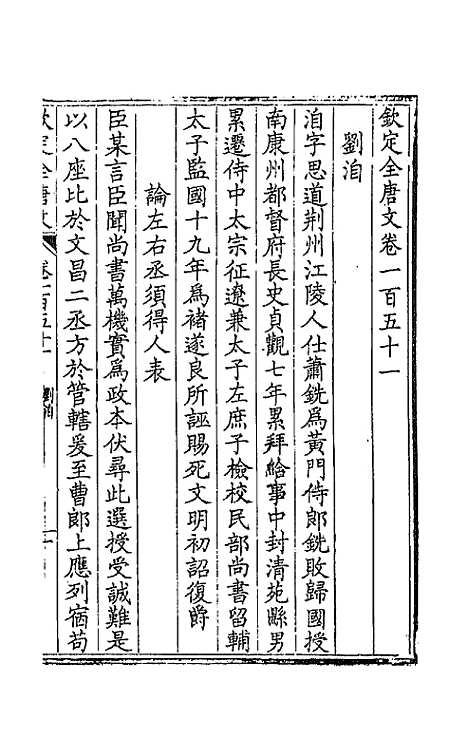 欽定全唐文卷一百五十一
劉洎
洎字思道荆州江陵人仕蕭銑爲黃門侍郎銑敗歸國授
南康州都督府長史貞觀七年累拜給事中封清苑縣男
累遷侍中太宗征遼兼太子左庶子檢校民部尚書留輔
太子監國十九年爲褚遂良所誣賜死文明初詔復爵
論左右丞須得人表
臣某言臣聞尚書萬機實爲政本伏尋此選授受誠難是
以八座比於文昌二丞方於管轄爰至曹郎上應列宿苟
欽定全唐文 卷一百五十一 劉洎 一